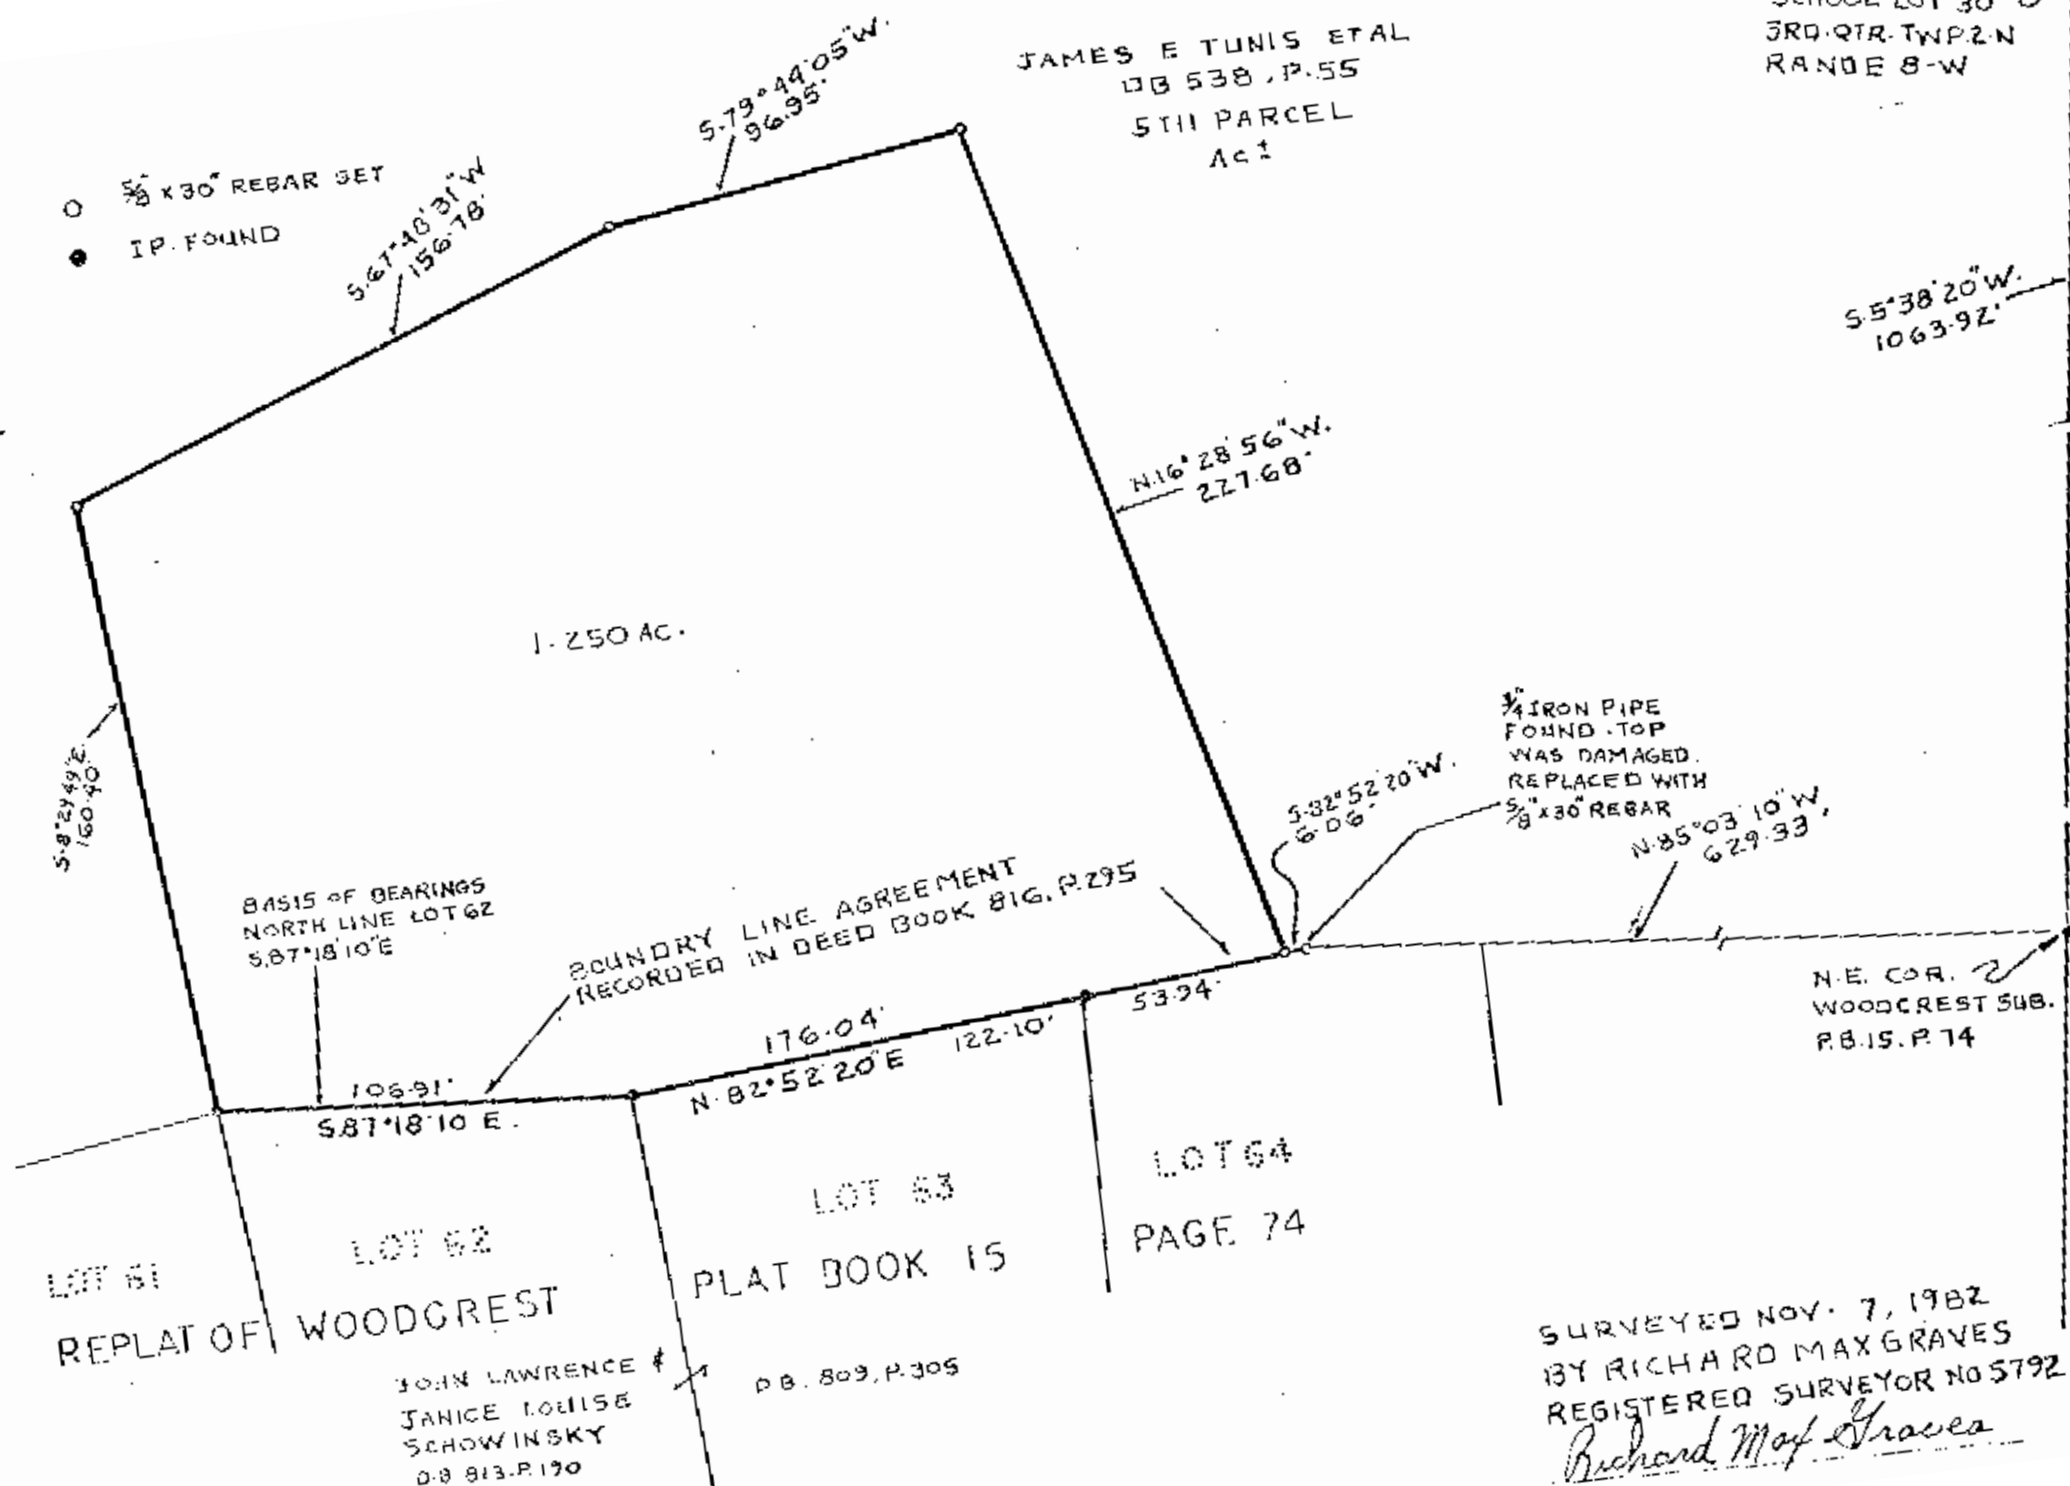 3RD. QTR. TWP. 2-N
RANGE 8-W
JAMES E TUNIS ET AL
DB 538, P. 55
5TH PARCEL
Ac ±
S. 79° 44' 05" W.
96.95'
5/8" x 30" REBAR SET
I.P. FOUND
S. 67° 48' 31" W
156.78'
S. 5° 38' 20" W.
1063.92'
N. 16° 28' 56" W.
227.68'
1.250 AC.
3/4" IRON PIPE
FOUND. TOP
WAS DAMAGED.
REPLACED WITH
5/8" x 30" REBAR
S. 82° 52' 20" W.
6.06'
N. 85° 03' 10" W.
629.33'
S. 8° 29' 49" E.
160.40'
BASIS OF BEARINGS
NORTH LINE LOT 62
S. 87° 18' 10" E
BOUNDRY LINE AGREEMENT
RECORDED IN DEED BOOK 816, P. 295
N.E. COR.
WOODCREST SUB.
P.B. 15. P. 74
176.04'
122.10'
53.94'
N. 82° 52' 20" E
106.91'
S. 87° 18' 10 E.
LOT 61
LOT 62
LOT 63
LOT 64
REPLAT OF WOODCREST
PLAT BOOK 15
PAGE 74
JOHN LAWRENCE &
JANICE LOUISE
SCHOWINSKY
D.B 813. P. 190
D B. 809, P. 305
SURVEYED NOV. 7, 1982
BY RICHARD MAX GRAVES
REGISTERED SURVEYOR NO 5792
Richard Max Graves